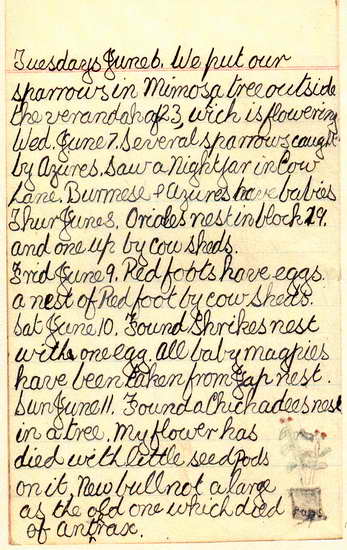 Tuesdays June 6. We put our
sparrows in Mimosa tree outside
the verandah of 23, wich is flowering
Wed. June 7. Several sparrows caught
by Azures. Saw a Nightjar in Cow
Lane. Burmese & Azures have babies
Thur June 8. Orioles nest in block 29.
and one up by cow sheds.
Frid June 9. Red foots have eggs.
a nest of Red foot by cow sheds.
Sat June 10. Found Shrikes nest
with one egg. All baby magpies
have been taken from Jap nest.
Sun June 11. Found a Chichadees nest
in a tree. My flower has
died with little seed pods
on it, New bull not a large
as the old one which died
of antrax.
PODS